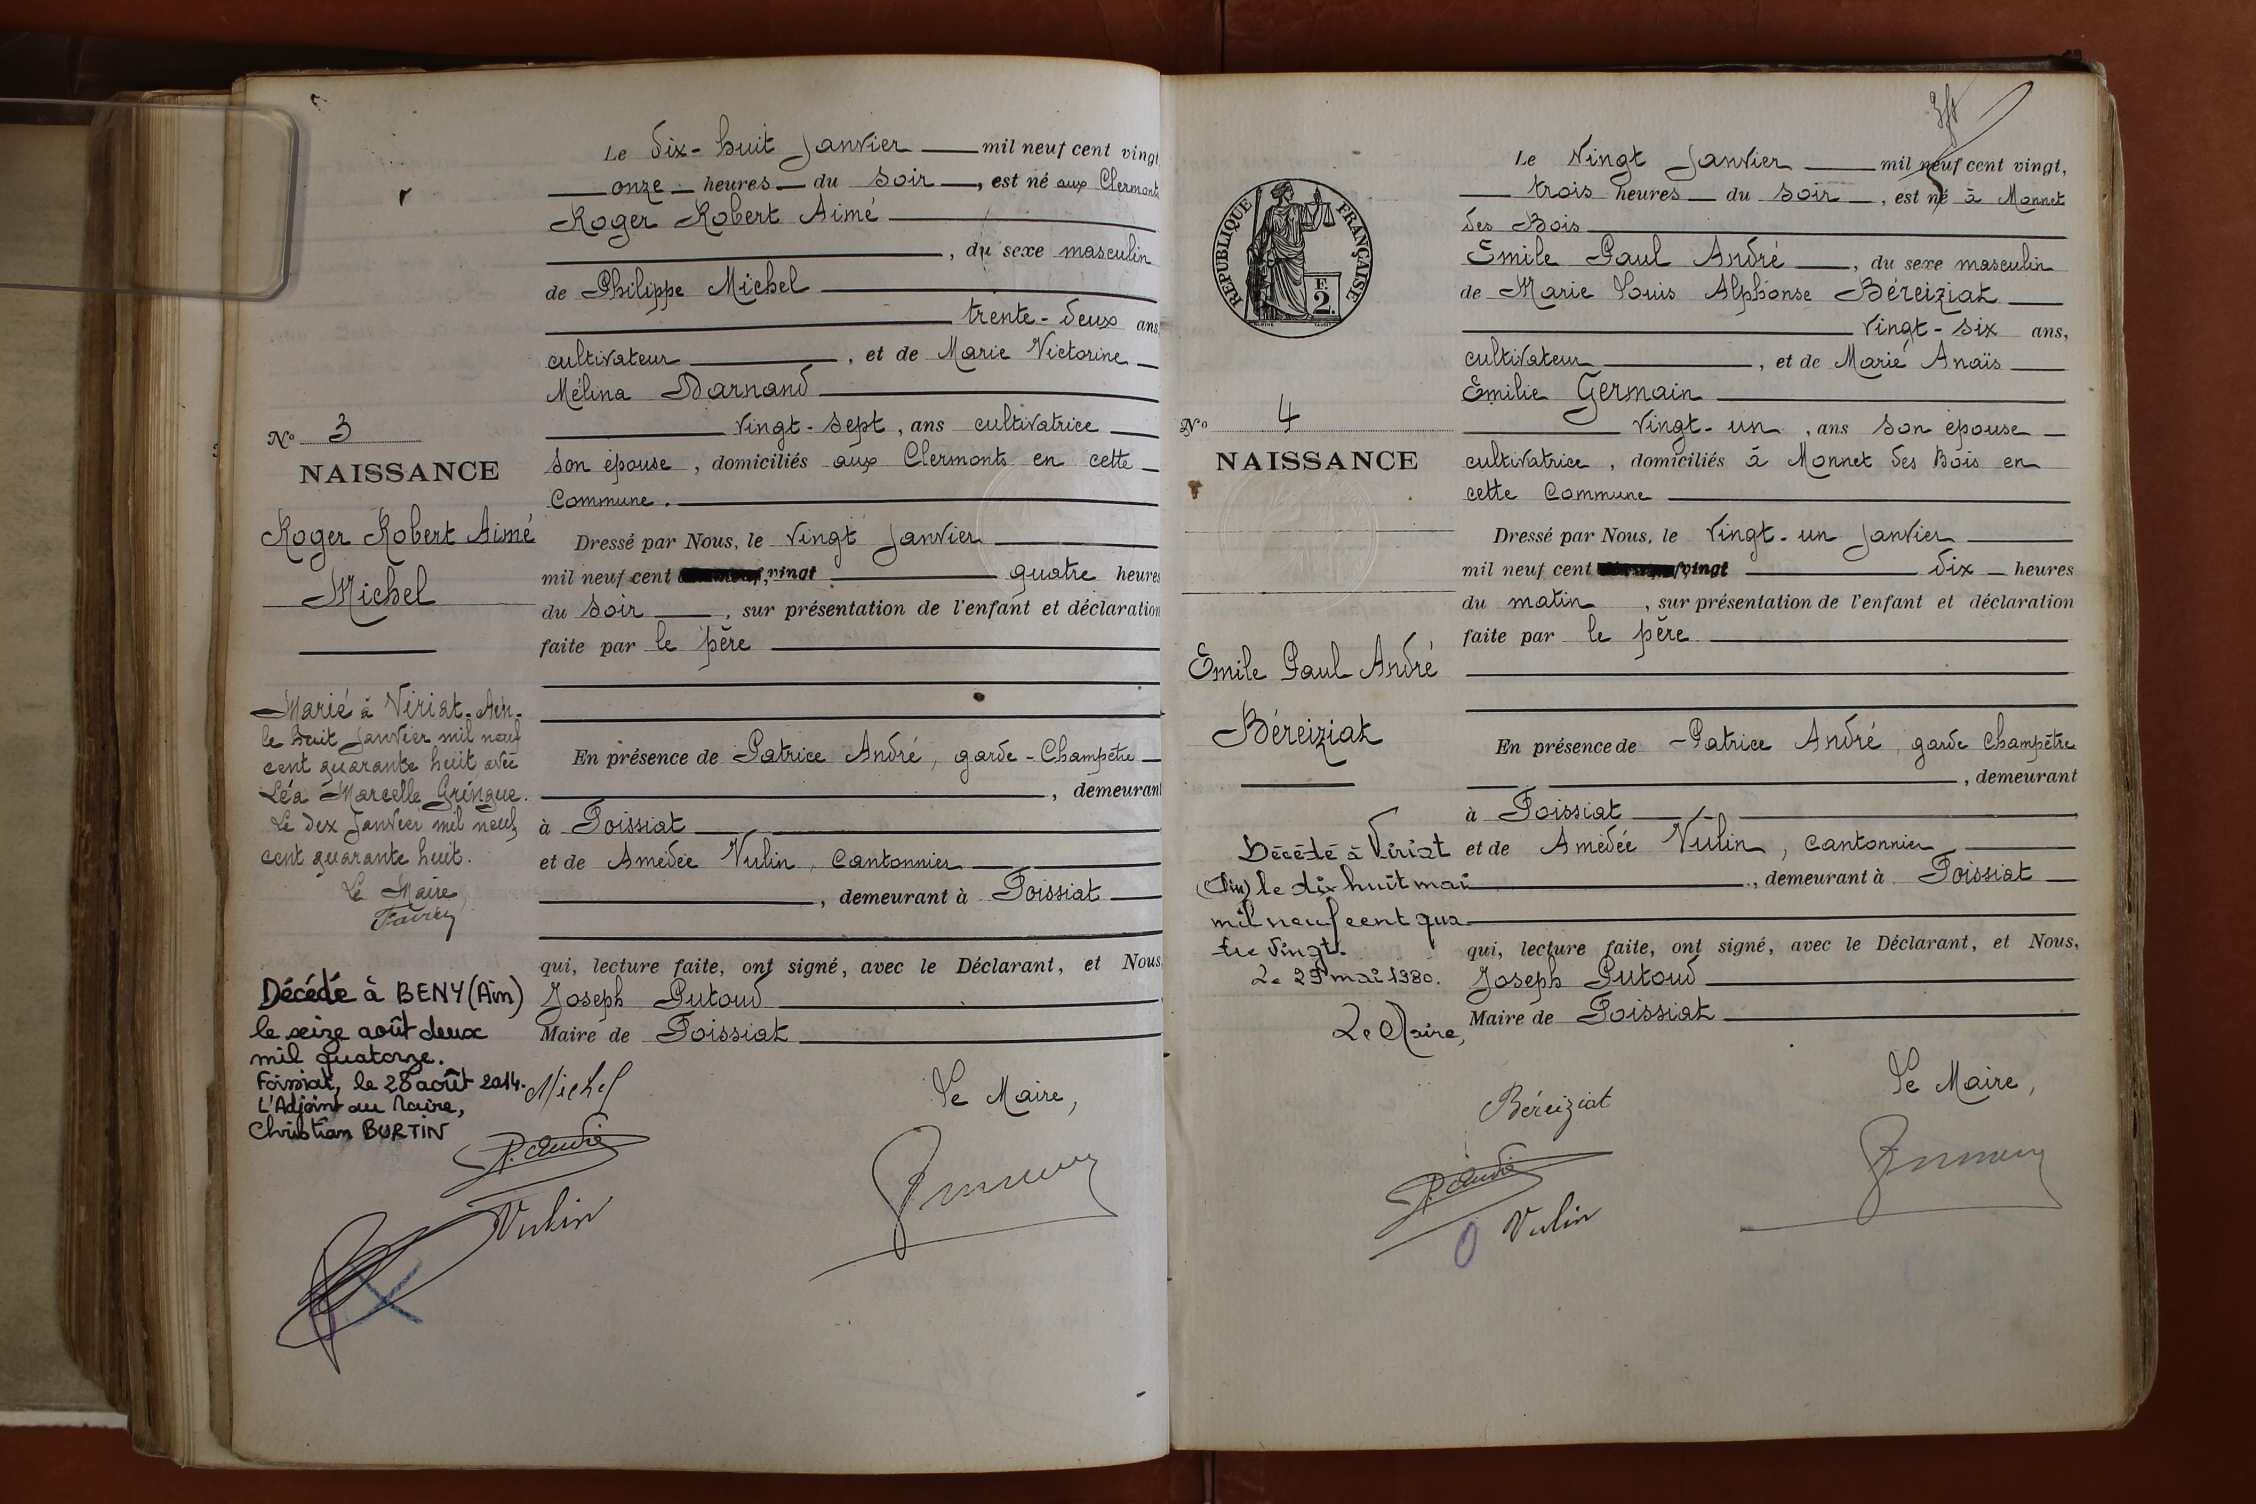 Le dix-huit Janvier mil neuf cent vingt
onze heures du soir, est né aux Clermonts
Roger Robert Aimé
, du sexe masculin
de Philippe Michel
trente-deux ans,
cultivateur, et de Marie Victorine
Mélina Darnand
vingt-sept, ans cultivatrice
son épouse, domiciliés aux Clermonts en cette
Commune.
Dressé par Nous, le vingt Janvier
mil neuf cent vingt quatre heures
du soir, sur présentation de l'enfant et déclaration
faite par le père
En présence de Patrice André, garde-Champetre
, demeurant
à Foissiat
et de Amédée Vulin, Cantonnier
, demeurant à Foissiat
qui, lecture faite, ont signé, avec le Déclarant, et Nous,
Joseph Putoud
Maire de Foissiat
Michel
Le Maire,
P. André
Vulin
No 3
NAISSANCE
Roger Robert Aimé
Michel
Marié à Viriat-Ain-
le huit Janvier mil neuf
cent quarante huit avec
Léa Marcelle Gringue.
Le dix Janvier mil neuf
cent quarante huit.
Le Maire,
Décédé à BENY (Ain)
le seize août deux
mil quatorze.
Foissiat, le 28 août 2014.
L'Adjoint au Maire,
Christian BURTIN
Le Vingt Janvier mil neuf cent vingt,
trois heures du soir, est né à Monnet
des Bois
Emile Paul André, du sexe masculin
de Marie Louis Alphonse Béreiziat
vingt-six ans,
cultivateur, et de Marie Anaïs
Emilie Germain
vingt-un, ans son épouse
cultivatrice, domiciliés à Monnet des Bois en
cette Commune
Dressé par Nous, le vingt-un Janvier
mil neuf cent vingt dix heures
du matin, sur présentation de l'enfant et déclaration
faite par le père
En présence de Patrice André, garde Champêtre
, demeurant
à Foissiat
et de Amédée Vulin, Cantonnier
, demeurant à Foissiat
qui, lecture faite, ont signé, avec le Déclarant, et Nous,
Joseph Putoud
Maire de Foissiat
Béreiziat
Le Maire,
P. André
Vulin
RÉPUBLIQUE FRANÇAISE
F.
2.
No 4
NAISSANCE
Emile Paul André
Béreiziat
Décédé à Viriat
(Ain) le dix huit mai
mil neuf cent qua
tre vingt.
Le 29 mai 1980.
Le Maire,